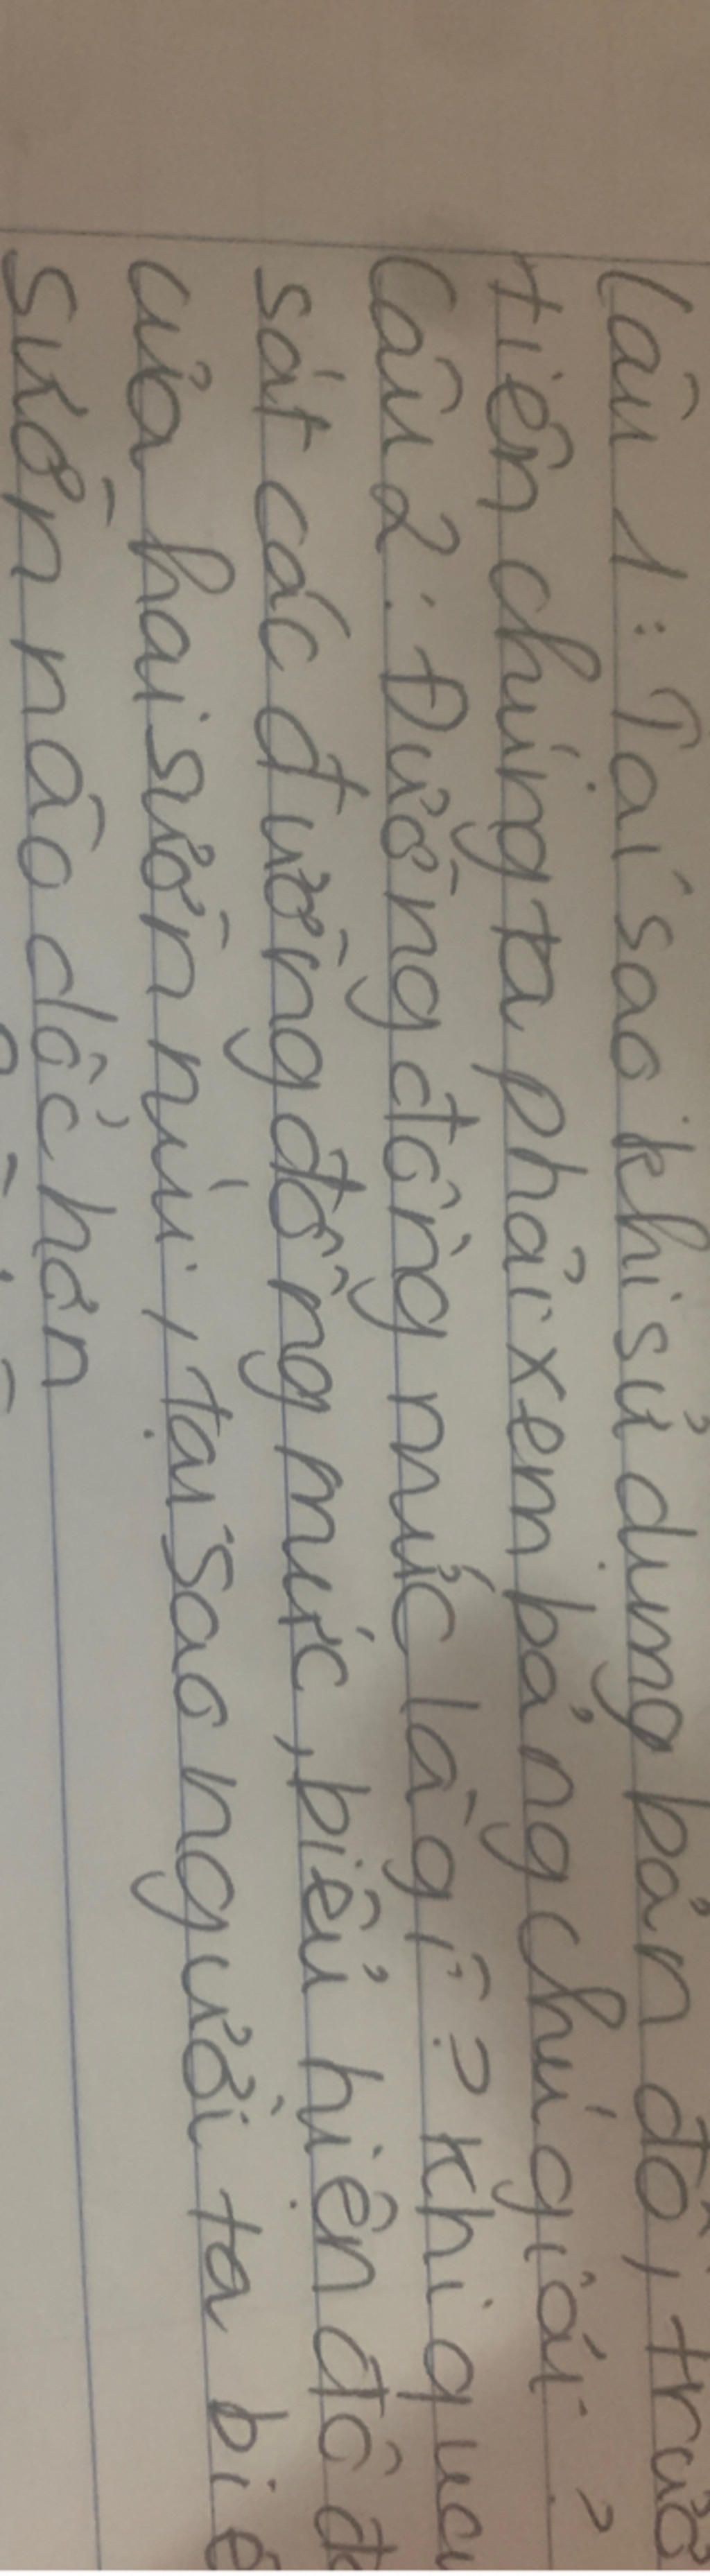 Câu 1: Tại sao khi sử dụng bản đồ, trướ
tiên chúng ta phải xem bảng chú giải?
Câu 2: Đường đồng mức là gì? Khi qua
sát các đường đồng mức, biểu hiện độ d
của hai sườn núi, tại sao người ta biế
sườn nào dốc hơn